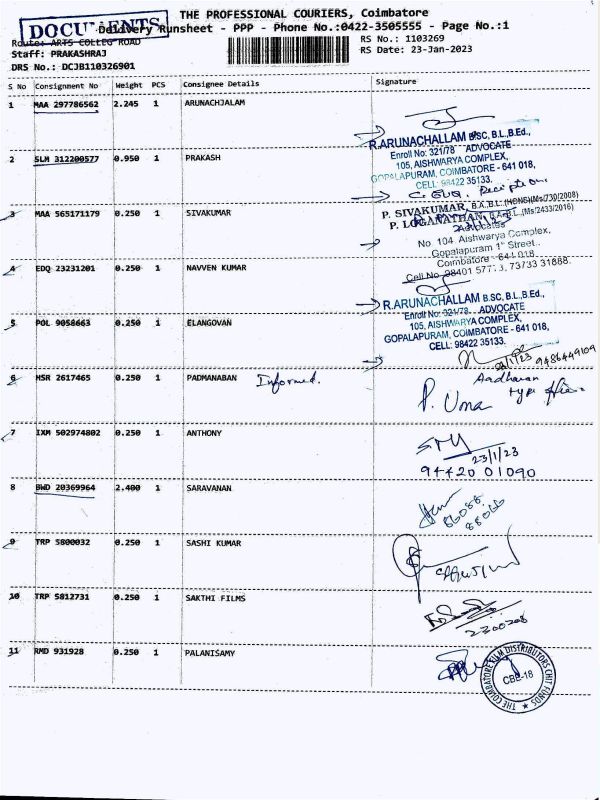 THE PROFESSIONAL COURIERS, Coimbatore
DOCUMENTS
Delivery Runsheet - PPP - Phone No.:0422-3505555 - Page No.:1
Route: ARTS COLLEG ROAD
RS No.: 1103269
Staff: PRAKASHRAJ
RS Date: 23-Jan-2023
DRS No.: DCJB110326901
S No Consignment No Weight PCS Consignee Details Signature
1 MAA 297786562 2.245 1 ARUNACHJALAM
R.ARUNACHALLAM BSC, B.L.,B.Ed.,
ADVOCATE
Enroll No: 321/78
105, AISHWARYA COMPLEX,
GOPALAPURAM, COIMBATORE - 641 018,
CELL: 98422 35133.
2 SLM 312200577 0.950 1 PRAKASH
3 MAA 565171179 0.250 1 SIVAKUMAR
P. SIVAKUMAR, B.A.,B.L.,(HONS)(Ms/730/2008)
P. LOGANATHAN, B.A.,B.L.,(Ms/2433/2016)
Advocates
No. 104, Aishwarya Complex,
Gopalapuram 1st Street,
Coimbatore - 641 018
4 EDQ 23231201 0.250 1 NAVVEN KUMAR
R.ARUNACHALLAM B.SC, B.L.,B.Ed.,
Enroll No: 321/78 ADVOCATE
105, AISHWARYA COMPLEX,
GOPALAPURAM, COIMBATORE - 641 018,
CELL: 98422 35133.
5 POL 9058663 0.250 1 ELANGOVAN
23/1/23 9486449109
6 HSR 2617465 0.250 1 PADMANABAN Informed.
P. Uma
7 IXM 502974802 0.250 1 ANTHONY
23/1/23
94420 01090
8 BWD 20369964 2.400 1 SARAVANAN
9 TRP 5800032 0.250 1 SASHI KUMAR
10 TRP 5812731 0.250 1 SAKTHI FILMS
11 RMD 931928 0.250 1 PALANISAMY
THE COIMBATORE FILM DISTRIBUTORS CHIT FUNDS
CBE-18